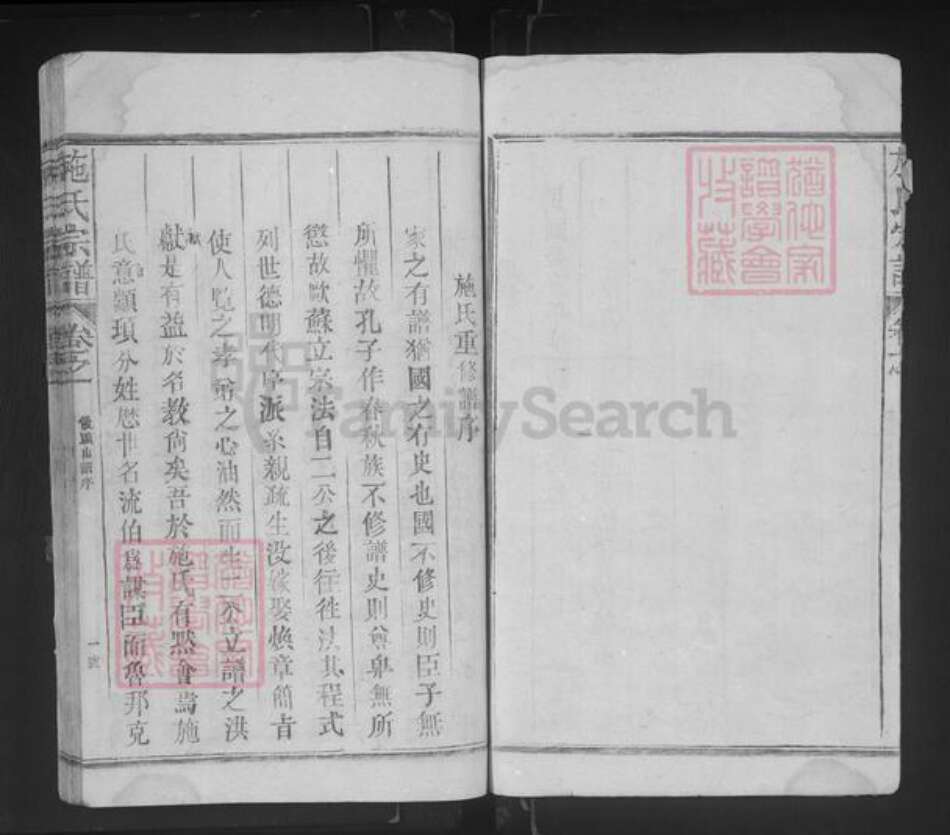 施氏重修譜序
家之有譜猶國之有史也國不修史則臣子無
所懼故孔子作春秋族不修譜史則尊卑無所
懲故歐蘇立宗法自二公之後往往法其程式
列世德明代序派系親疏生没嫁娶煥章簡青
使人覽之孝弟之心油然而生不立譜之洪
猷是有益於名教尚矣吾於施氏有默會焉施
氏意顓頊分姓歷世名流伯為謀臣而魯邦克
施氏宗譜
卷之一
譜序
一
猶他家譜學會收藏
猶他家譜學會收藏
FamilySearch